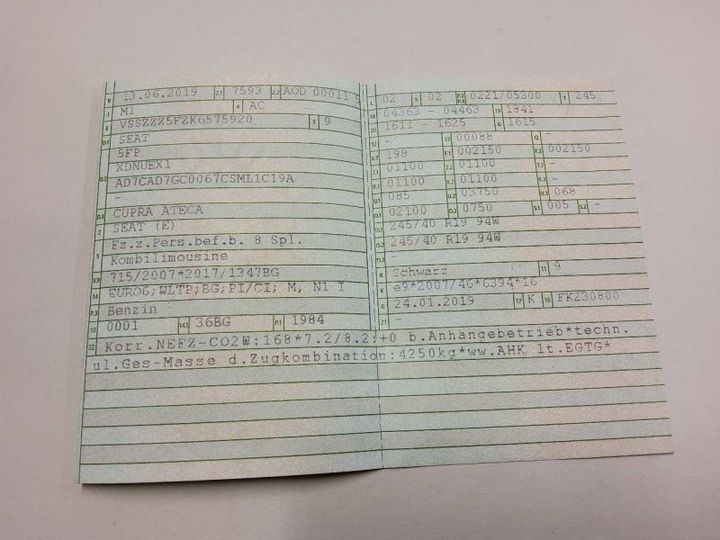 B 13.06.2019 2.1 7593 2.2 AOD 00011 5
J M1 4 AC
E VSSZZZ5FZK6575920 3 9
D.1 SEAT
5FP
D.2 XDNUEX1
AD7CAD7GC0067CSML1C19A
-
D.3 CUPRA ATECA
2 SEAT (E)
5 Fz.z.Pers.bef.b. 8 Spl.
Kombilimousine
V.9 715/2007*2017/1347BG
14 EURO6;WLTP;BG;PI/CI; M, N1 I
P.3 Benzin
10 0001 14.1 36BG P.1 1984
L 02 9 02 P.2 P.4 0221/05300 T 245
18 04363 - 04463 19 1841
20 1611 - 1625 G 1615
12 - 13 00088 Q -
V.7 198 F.1 002150 F.2 002150
7.1 01100 7.2 01100 7.3 -
8.1 01100 8.2 01100 8.3 -
U.1 085 U.2 03750 U.3 068
O.1 02100 O.2 0750 S.1 005 S.2 -
15.1 245/40 R19 94W
15.2 245/40 R19 94W
15.3 -
R Schwarz 11 9
K e9*2007/46*6394*16
6 24.01.2019 17 K 16 FK230800
21 -
22 Korr.NEFZ-CO2W:168*7.2/8.2:+0 b.Anhängebetrieb*techn.
ul.Ges-Masse d.Zugkombination:4250kg*ww.AHK lt.EGTG*